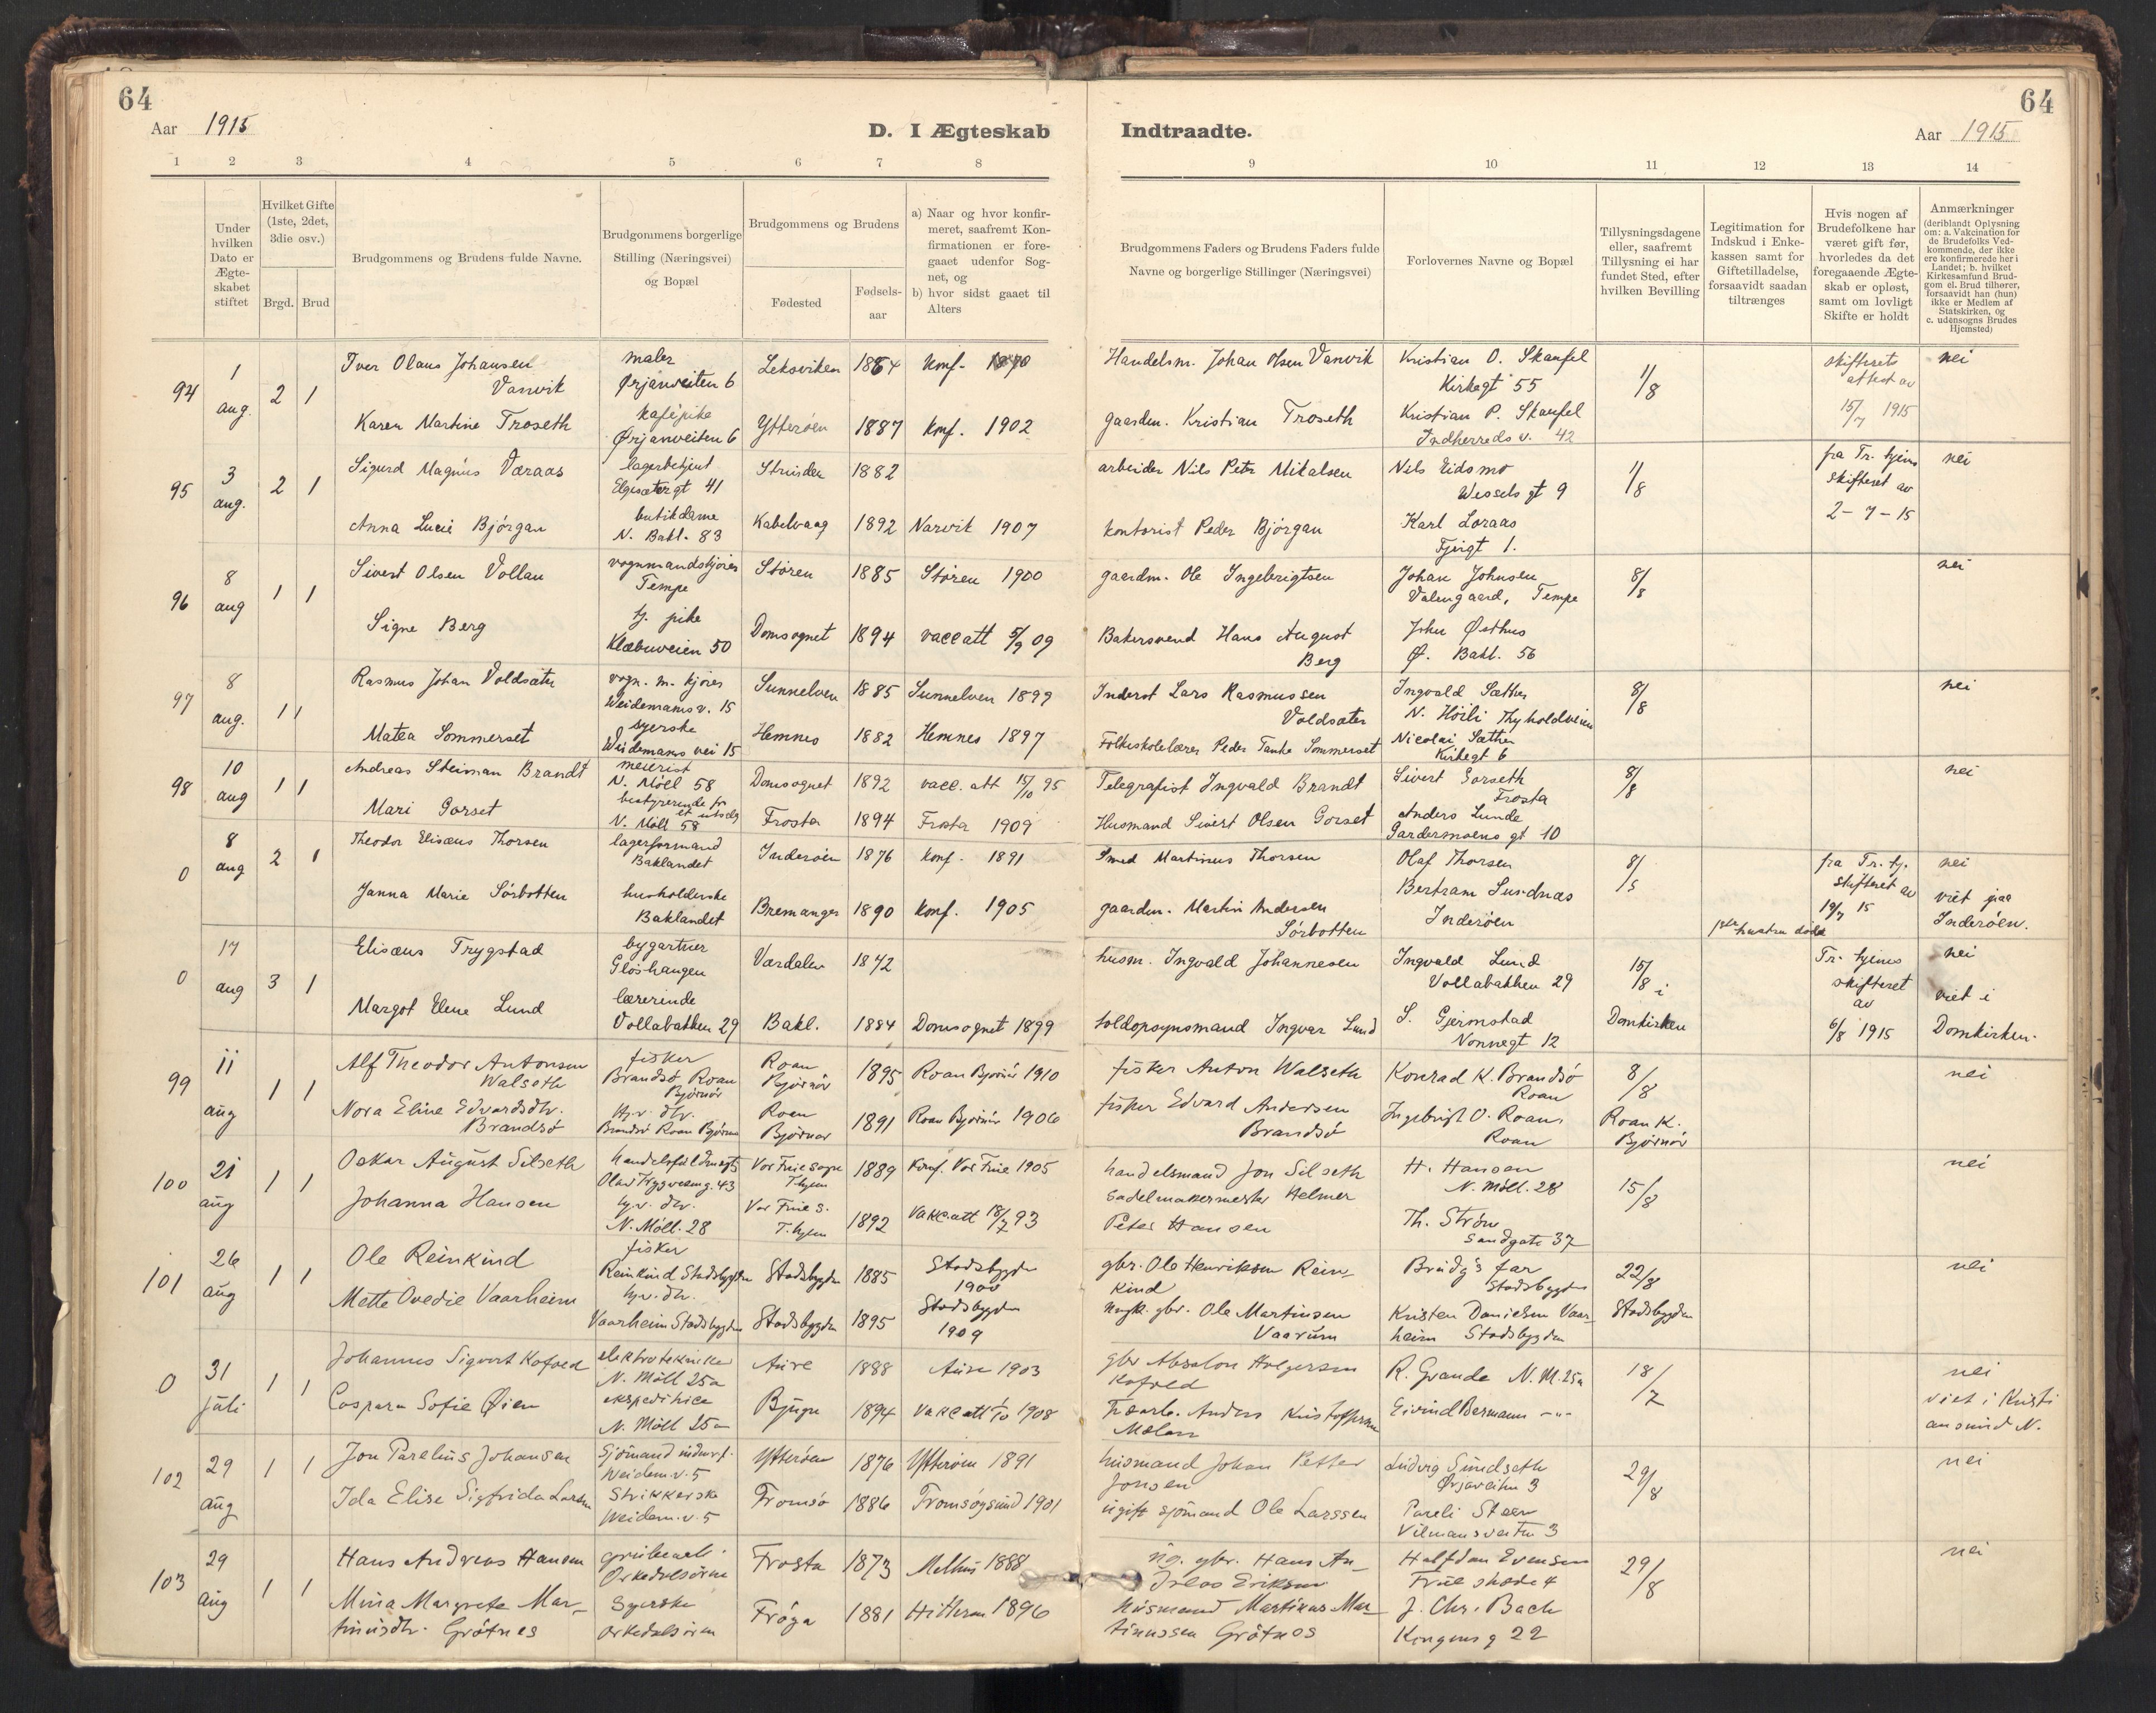 64
64
Aar 1915
D. I Ægteskab
Indtraadte.
Aar 1915
1 2 3 4 5 6 7 8
9 10 11 12 13 14
Under hvilken Dato er Ægteskabet stiftet
Hvilket Gifte (1ste, 2det, 3die osv.)
Brgd. Brud
Brudgommens og Brudens fulde Navne.
Brudgommens borgerlige Stilling (Næringsvei) og Bopæl
Brudgommens og Brudens
Fødested
Fødselsaar
a) Naar og hvor konfirmeret, saafremt Konfirmationen er foregaaet udenfor Sognet, og
b) hvor sidst gaaet til Alters
Brudgommens Faders og Brudens Faders fulde Navne og borgerlige Stillinger (Næringsvei)
Forlovernes Navne og Bopæl
Tillysningsdagene eller, saafremt Tillysning ei har fundet Sted, efter hvilken Bevilling
Legitimation for Indskud i Enkekassen samt for Giftetilladelse, forsaavidt saadan tiltrænges
Hvis nogen af Brudefolkene har været gift før, hvorledes da det foregaaende Ægteskab er opløst, samt om lovligt Skifte er holdt
Anmærkninger (deriblandt Oplysning om: a. Vakcination for de Brudefolks Vedkommende, der ikke ere konfirmerede her i Landet; b. hvilket Kirkesamfund Brudgom el. Brud tilhører, forsaavidt han (hun) ikke er Medlem af Statskirken, og c. udensogns Brudes Hjemsted)
94 1 aug. 2 1
Iver Olaus Johansen Vanvik
maler Ørjanveiten 6
Leksviken 1864 konf.
Handelsm. Johan Olsen Vanvik
Kristian O. Skaufel Kirkegt 55
1/8
skifterets attest av 15/7 1915
nei
Karen Martine Troseth
kafépike Ørjanveiten 6
Ytterøen 1887 konf. 1902
gaardm. Kristian Troseth
Kristian P. Skaufel Indherreds v. 42
95 3 aug. 2 1
Sigurd Magnus Væraas
lagerbetjent Elgesætergt 41
Strinden 1882
arbeider Nils Petr Mikalsen
Nils Eidsmo Wessels gt 9
1/8
fra Tr. hjems skifteret av 2-7-15
nei
Anna Lucie Bjørgan
butikdame N. Bakl. 83
Kabelvaag 1892 Narvik 1907
kontorist Peder Bjørgan
Karl Loraas
96 8 aug 1 1
Sivert Olsen Vollan
vognmandskjører Tempe
Støren 1885 Støren 1900
gaardm. Ole Ingebrigtsen
Johan Johnsen Valengaard, Tempe
8/8
nei
Signe Berg
tj. pike Klæbuveien 50
Domsognet 1894 vacc att 5/9 09
Bakersvend Hans August Berg
John Østhus Ø. Bakl. 56
97 8 aug. 1 1
Rasmus Johan Voldsæter
vogn. m. kjører Weidemans v. 15
Sunnelven 1885 Sunnelven 1899
Inderst Lars Rasmussen Voldsæter
Ingvald Sæther N. Høili Thyholdveien
8/8
nei
Matea Sommerset
syerske Weidemans vei 15
Hemnes 1882 Hemnes 1897
Folkeskolelærer Peder Tanke Sommerset
Nicolai Sæther Kirkegt 6
98 10 aug 1 1
Andreas Steiman Brandt
meierist N. Möll 58
Domsognet 1892 vacc. att 15/10 95
Telegrafist Ingvald Brandt
Sivert Gorseth Frosta
8/8
nei
Mari Gorset
bestyrerinde for et utsalg N. Möll 58
Frosta 1894 Frosta 1909
Husmand Sivert Olsen Gorset
Anders Lunde Gardermoens gt 10
0 8 aug 2 1
Theodor Elisæus Thorsen
lagerformand Baklandet
Inderøen 1876 konf. 1891
Smed Martinus Thorsen
Olaf Thorsen
8/5
fra Tr. hj. skifteret av 19/7 15
nei viet paa Inderøen.
Janna Marie Sørbotten
husholderske Baklandet
Bremanger 1890 konf. 1905
gaardm. Martin Andersen Sørbotten
Bertram Sundnæs Inderøen
0 17 aug 3 1
Elisæus Trygstad
bygartner Gløshaugen
Værdalen 1842
husm. Ingvald Johannesen
Ingvald Lund Vollabakken 29
15/8 i Domkirken
hustru død
Tr. hjems skifteret av 6/8 1915
nei viet i Domkirken.
Margot Elene Lund
lærerinde Vollabakken 29
Bakl. 1884 Domsognet 1899
toldopsynsmand Ingvar Lund
S. Gjermstad Nonnegt 12
99 11 aug 1 1
Alf Theodor Antonsen Walseth
fisker Brandsø Roan Bjørnør
Roan Bjørnør 1895 Roan Bjørnør 1910
fisker Anton Walseth
Konrad K. Brandsø Roan
8/8
nei
Nora Eline Edvardsdtr. Brandsø
hj.v. dtr. Brandsø Roan Bjørnør
Roan Bjørnør 1891 Roan Bjørnør 1906
fisker Edvard Andersen Brandsø
Ingebrigt O. Roan, Roan
Roan K. Bjørnør
100 21 aug 1 1
Oskar August Silseth
handelsfuldmægt. Olav Trygvesøng. 43
Vor Frue sogn Thjem 1889 Konf. Vor Frue 1905
handelsmand Jon Silseth
H. Hansen N. Möll. 28
15/8
nei
Johanna Hansen
hj.v. dtr. N. Möll. 28
Vor Frue s. T.hjem 1892 Vakc.att 18/7 93
Sadelmakermester Helmer Peter Hansen
Th. Strøm Sandgate 37
101 26 aug 1 1
Ole Reinkind
fisker Reinkind Stadsbygden
Stadsbygden 1885 Stadsbygden 1900
gbr. Ole Henriksen Reinkind
Brudg's far Stadsbygden
22/8
nei
Mette Ovedie Vaarheim
hj.v. dtr. Vaarheim Stadsbygden
Stadsbygden 1895 Stadsbygden 1909
gbr. Ole Martinsen Vaarum
Kristen Danielsen Vaarheim Stadsbygden
Stadsbygden
0 31 juli 1 1
Johannes Sigvart Kofoed
elektrotekniker N. Möll 25a
Aure 1888 Aure 1903
gbr Absalon Holgersen Kofoed
R. Grande N. M. 25a
18/7
nei viet i Kristiansund N.
Caspara Sofie Øien
ekspeditrice N. Möll 25a
Bjugn 1894 Vakc att 1/10 1908
Anders Kristoffersen
Eivind Bermann -"-
102 29 aug 1 1
Jon Parelius Johansen
Sjömand Weidem. v. 5
Ytterøen 1876 Ytterøen 1891
husmand Johan Petter Jonsen
Ludvig Sundseth Ørjaveiten 3
29/8
nei
Ida Elise Sigfrida Larsen
Strikkerske Weidem. v. 5
Tromsø 1886 Tromsøysund 1901
ugift sjömand Ole Larssen
Pareli Steen Vilmansveiten 3
103 29 aug 1 1
Hans Andreas Hansen
grubearb. Orkedalsøren
Frosta 1873 Melhus 1888
ng. gbr. Hans Andreas Eriksen
Halfdan Evensen Frue stræde 4
29/8
nei
Mina Margrete Martinusdtr. Grötnes
Syerske Orkedalsøren
Frøya 1881 Hitteren 1896
Husmand Martinus Martinussen Grötnes
J. Chr. Bach Kongens g 22